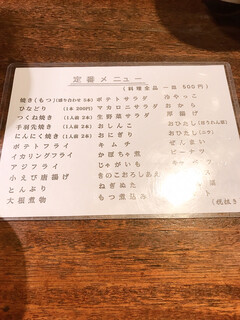 定番メニュー
(料理全品 一皿 500円)
焼き(もつ)(盛り合わせ 5本) ポテトサラダ 冷やっこ
ひなどり (1本 200円) マカロニサラダ おから
つくね焼き (1人前 2本) 生野菜サラダ 厚揚げ
手羽先焼き (1人前 2本) おしんこ おひたし(ほうれん草)
にんにく焼き (1人前 2本) おにぎり おひたし
ポテトフライ キムチ ぜんまい
イカリングフライ かぼちゃ煮 ピーナツ
アジフライ じゃがいも
小えび唐揚げ きのこおろしあえ
とんぶり ねぎぬた
大根煮物 もつ煮込み ト
(税抜き